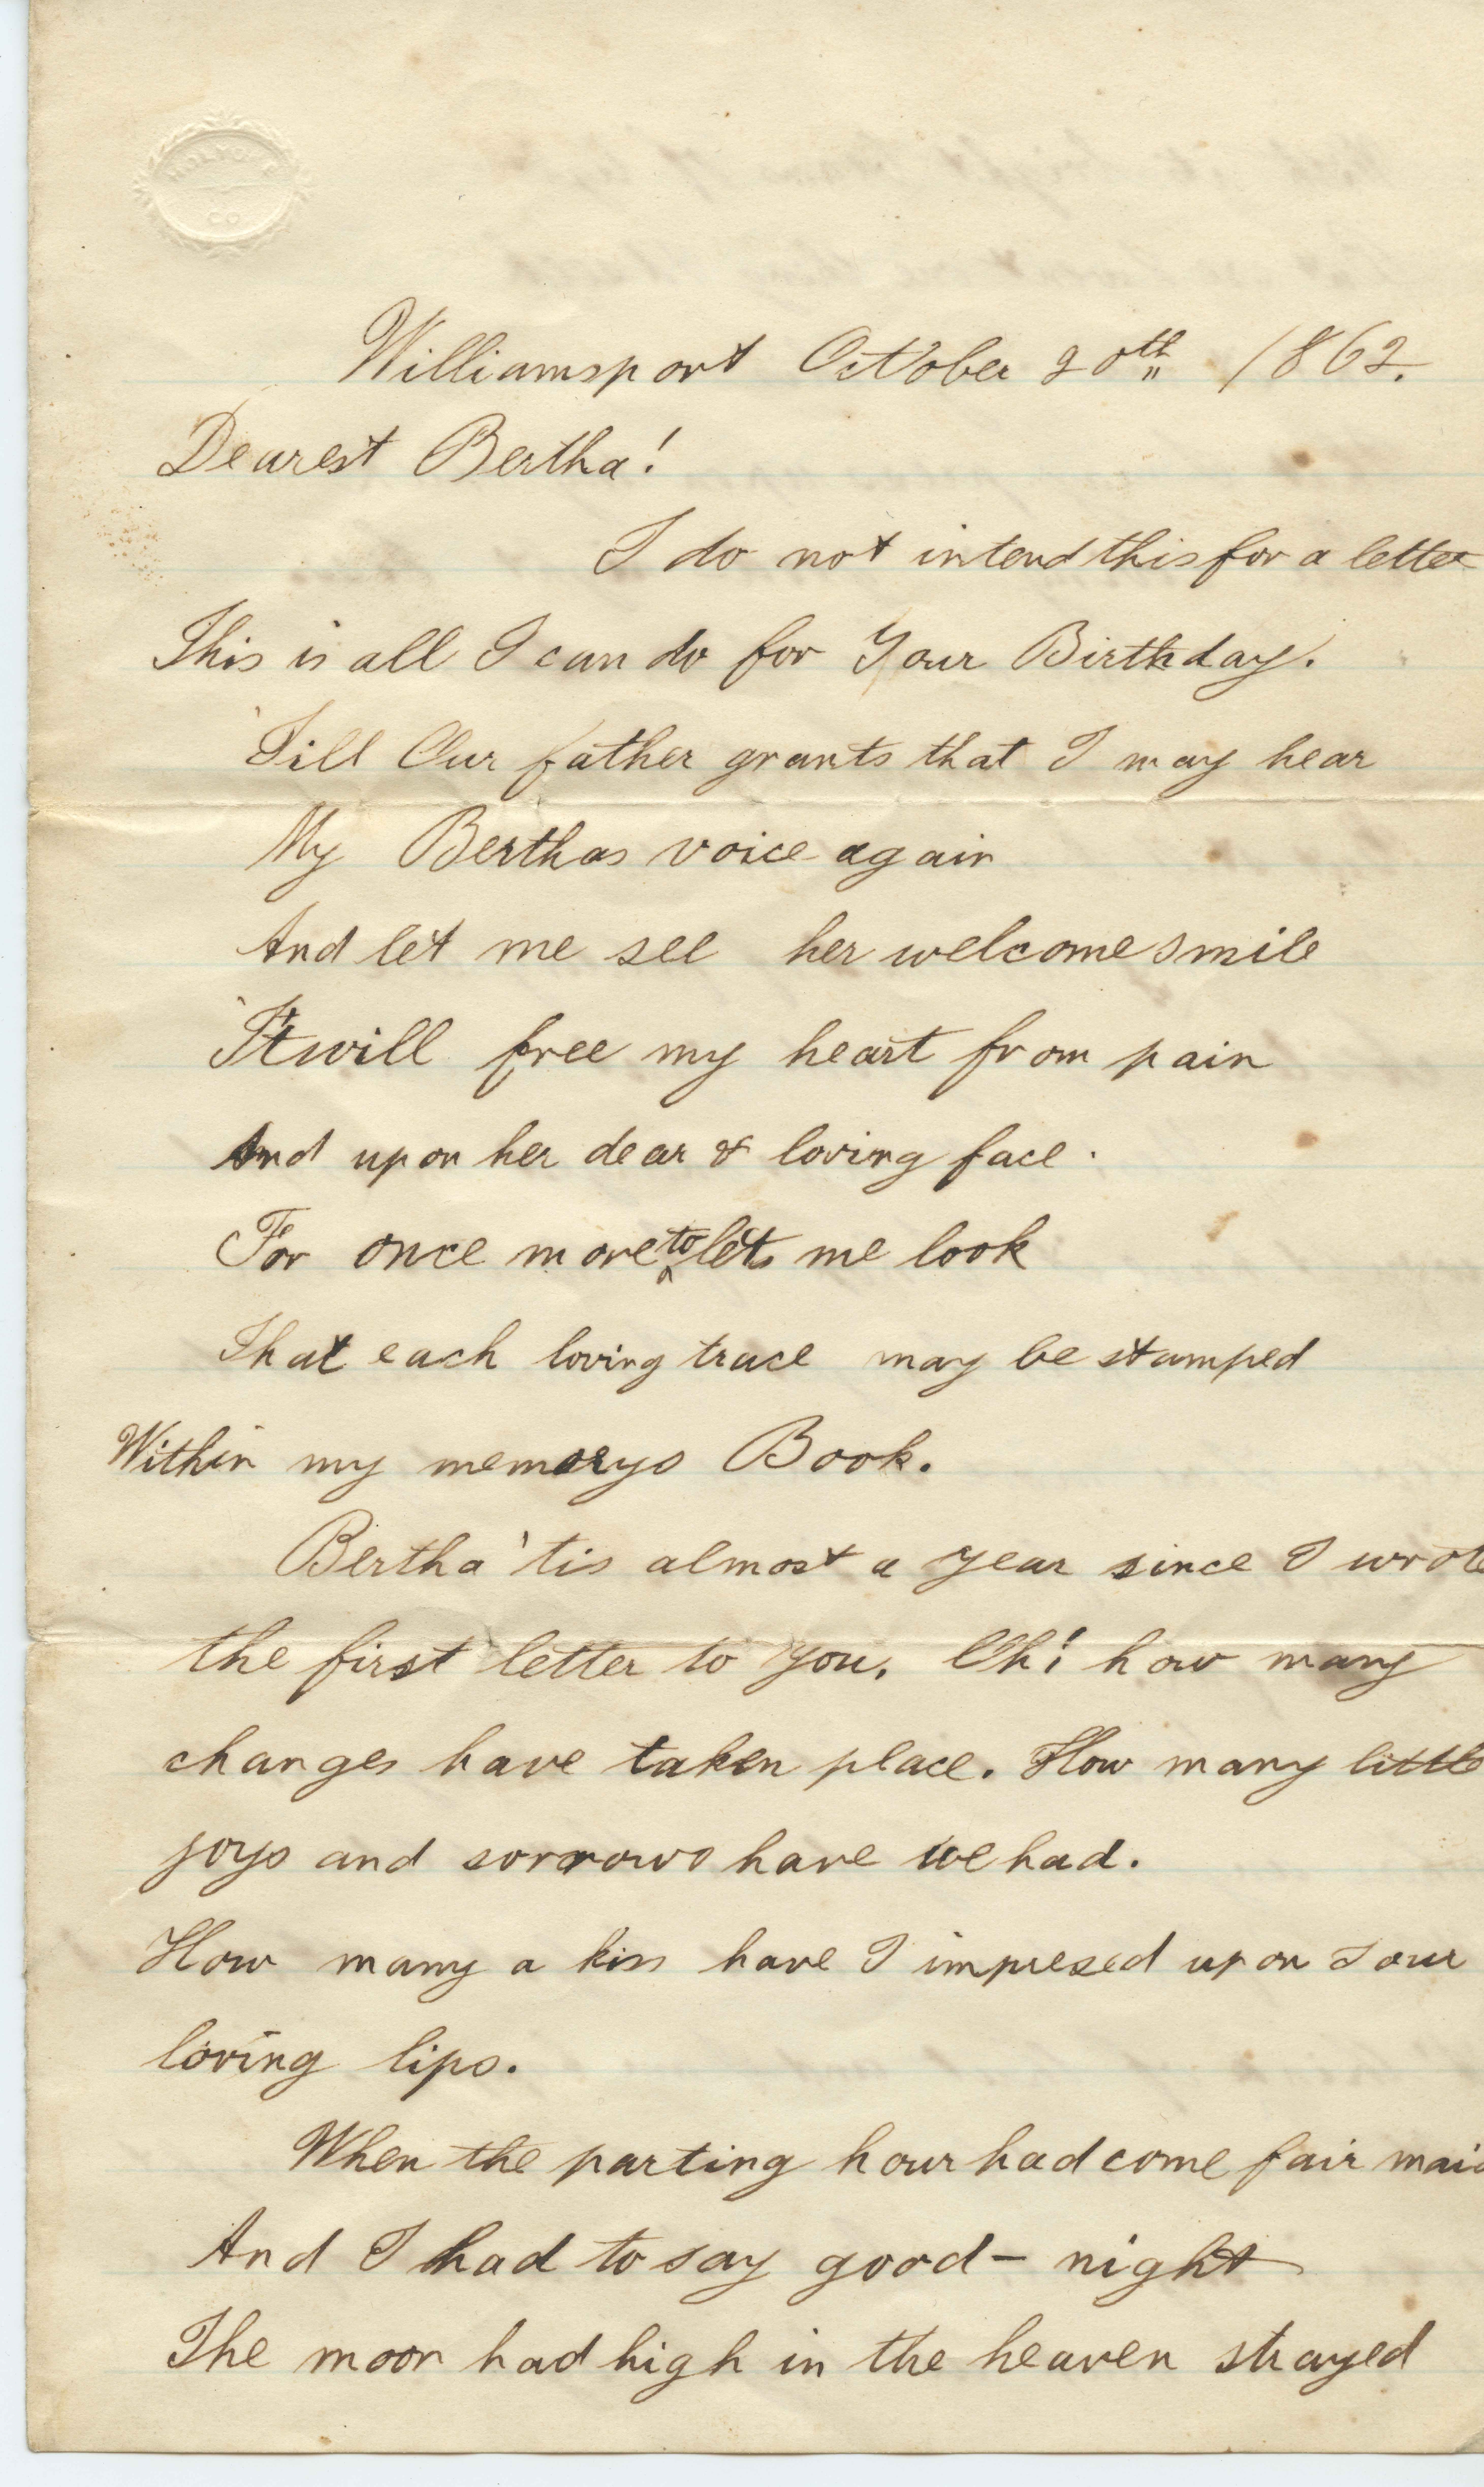 HOLYOKE
CO
Williamsport October 20th 1862.
Dearest Bertha!
I do not intend this for a letter
This is all I can do for Your Birthday.
'Till Our father grants that I may hear
My Berthas voice again
And let me see her welcome smile
'Twill free my heart from pain
And upon her dear & loving face.
For once more to let me look
That each loving trace may be stamped
Within my memorys Book.
Bertha 'tis almost a year since I wrote
the first letter to you. Oh! how many
changes have taken place. How many little
joys and sorrows have we had.
How many a kiss have I impresed upon Your
loving lips.
When the parting hour had come fair maid
And I had to say good - night
The moon had high in the heaven strayed